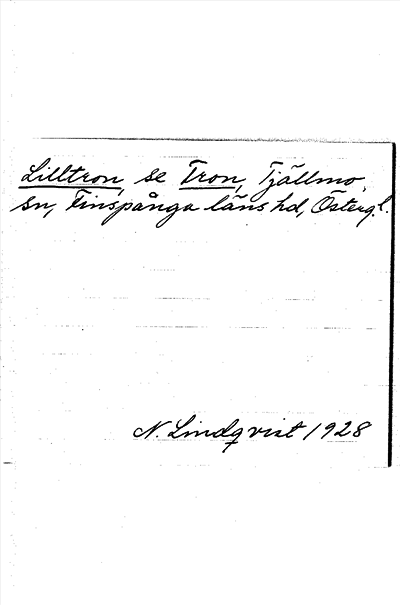 Lilltron, se Tron, Tjällmo,
sn, Finspånga läns hd, Österg.l.
N. Lindqvist 1928